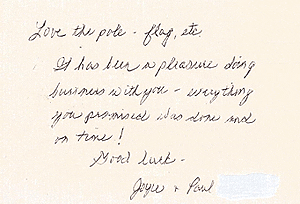 Love the pole - flag, etc.
It has been a pleasure doing
business with you - everything
you promised was done and
on time!
Good luck -
Joyce + Paul